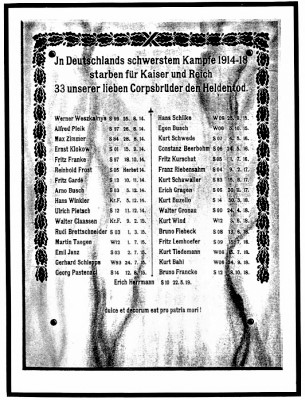 Jn Deutschlands schwerstem Kampfe 1914-18
starben für Kaiser und Reich
33 unserer lieben Corpsbrüder den Heldentod.
Werner Weszkalnys S 99 26. 8. 14.
Alfred Pleik S 97 26. 8. 14.
Max Zimmer S 94 28. 8. 14.
Ernst Klokow S 01 5. 9. 14.
Fritz Franke S 97 18. 10. 14.
Reinhold Frost S 05 Herbst 14.
Fritz Gardé S 13 10. 11. 14.
Arno Busch S 03 5. 12. 14.
Hans Winkler Kr.F. 5. 12. 14.
Ulrich Pietsch S 12 11. 12. 14.
Walter Claassen Kr.F. 9. 2. 15.
Rudi Brettschneider S 03 1. 3. 15.
Martin Tungen W12 1. 7. 15.
Emil Jenz S 03 2. 7. 15.
Gerhard Schleppe W98 24. 7. 15.
Georg Pastenaci S 14 12. 8. 15.
Hans Schilke W 09 25. 8. 15.
Egon Busch W00 15.
Kurt Schwede S 07 15.
Constanz Beerbohm S 06 16.
Fritz Kurschat S 05 1. 7. 16.
Franz Riebensahm S 04 3. 7. 17.
Kurt Schawaller S 03 17.
Erich Gragen S 06 17.
Kurt Buzello S 14 30. 3. 18.
Walter Gronau S 00 24. 4. 18.
Kurt Wind W12 3. 6. 18.
Bruno Fiebeck S 08 13. 6. 18.
Fritz Lemhoefer S 09 15. 7. 18.
Kurt Tiedemann W08 15. 7. 18.
Kurt Bahl W08 24. 9. 18.
Bruno Francke S 13 10. 18.
Erich Herrmann S 10 22. 5. 19.
dulce et decorum est pro patria mori !